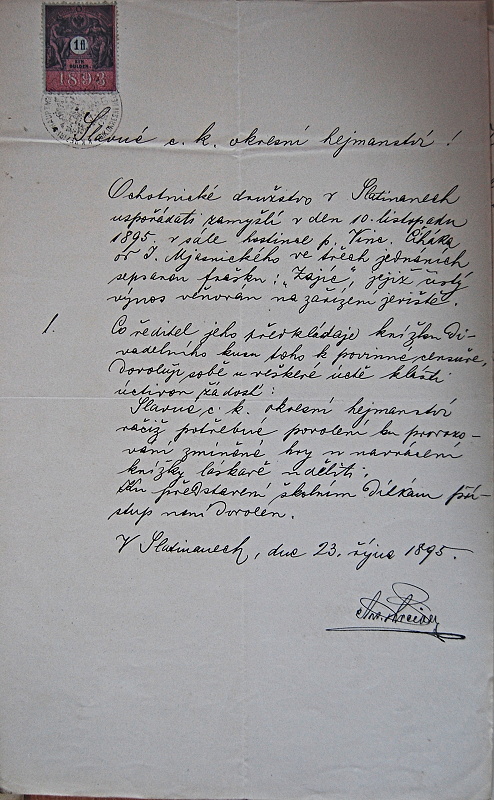 1 fl.
EIN GULDEN
1893
Slavné c. k. okresní hejmanství!
Ochotnické družstvo v Slatinanech
uspořádati zamýšlí v den 10. listopadu
1895 v sále hostince p. Vinc. Ciháka
od I. Mjasnického ve třech jednáních
sepsanou frašku: "Zajíc", jejíž čistý
výnos věňován na zařízení jeviště.
1.
Co ředitel jeho předkládaje knížku di-
vadelního kusu toho k povinné censuře,
dovoluji sobě u veškeré úctě klásti
úctivou žádost:
Slavné c. k. okresní hejmanství
račiž potřebné povolení ku provozo-
vání zmíněné hry u navrácení
knížky láskavě uděliti.
Ku představení školním dítkám pří-
stup není dovolen.
V Slatinanech, dne 23. října 1895.